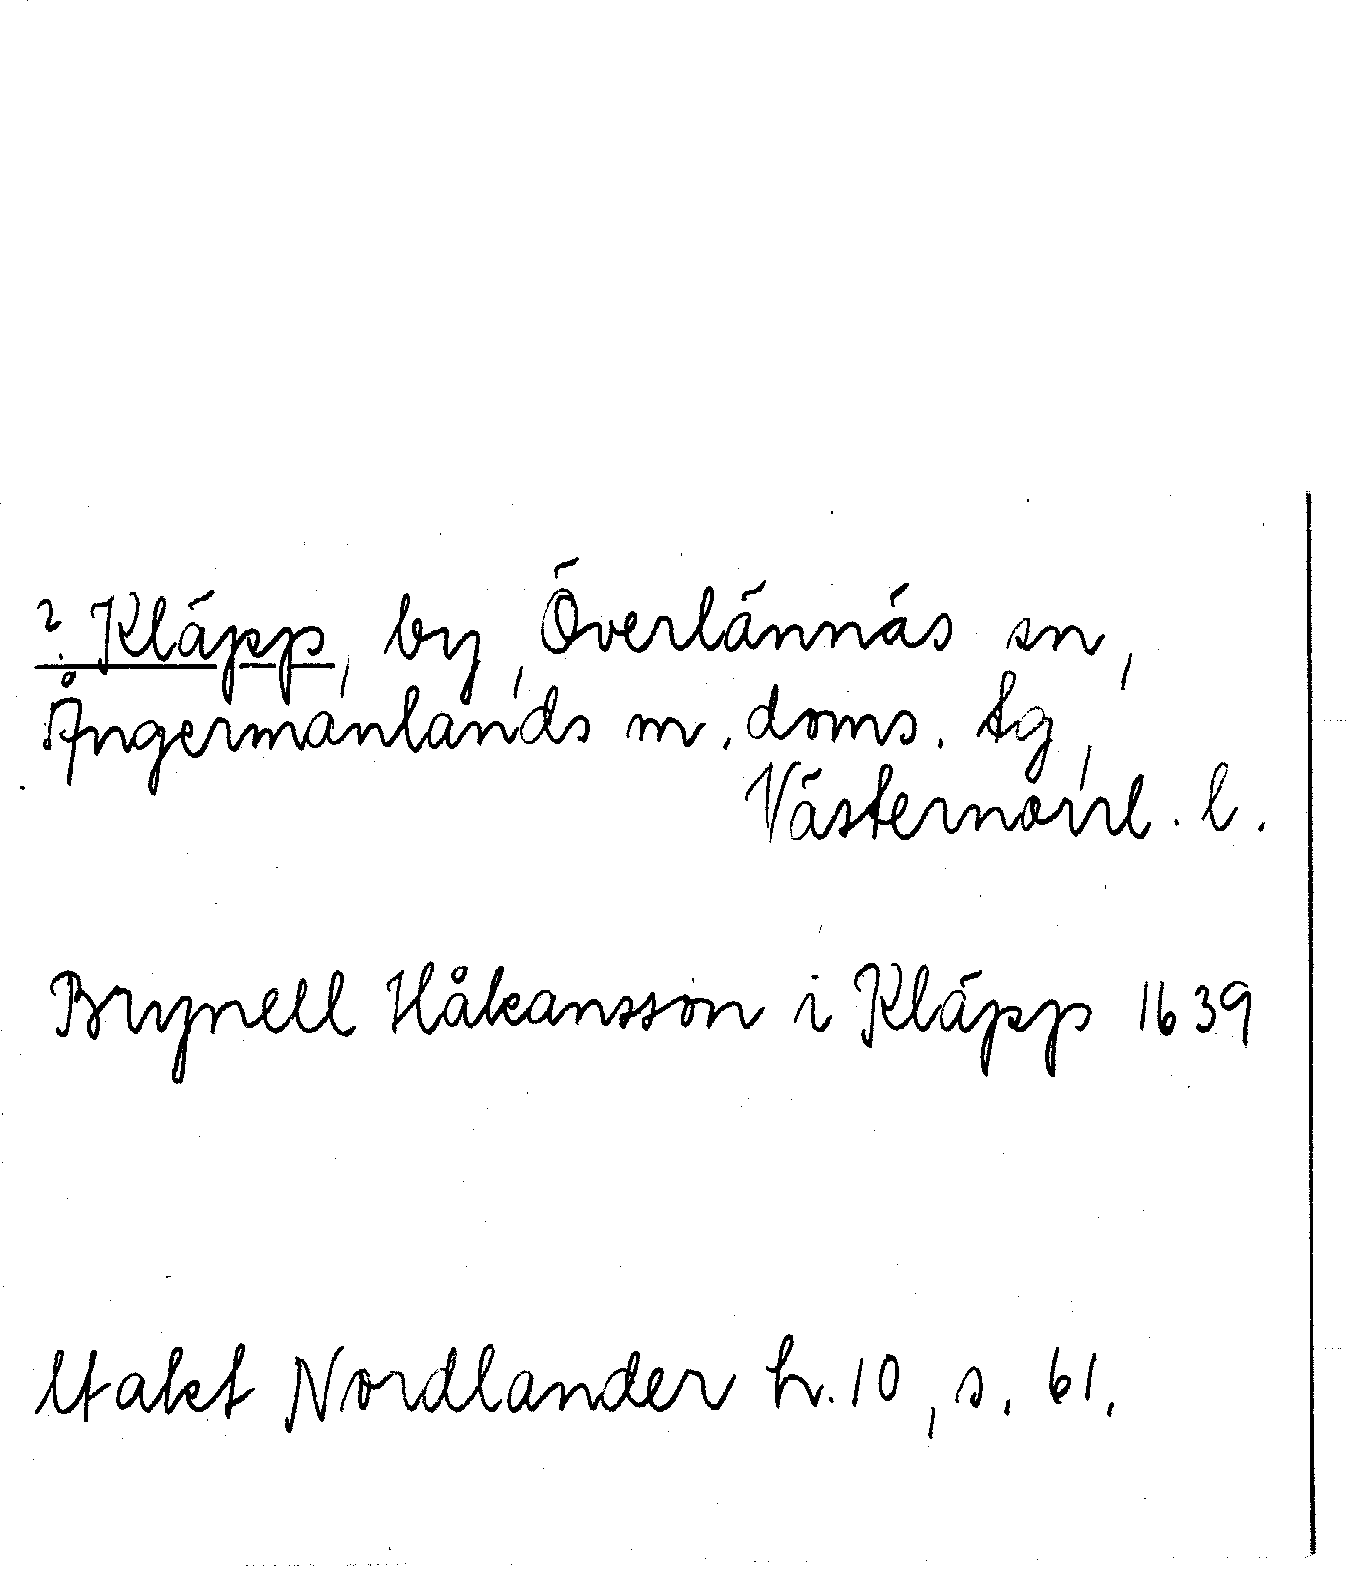 ? Kläpp, by, Överlännäs sn,
Ångermanlands m. doms. tg,
Västernorrl. l.
Brynell Håkansson i Kläpp 1639
Utakt Nordlander h. 10, s. 61.